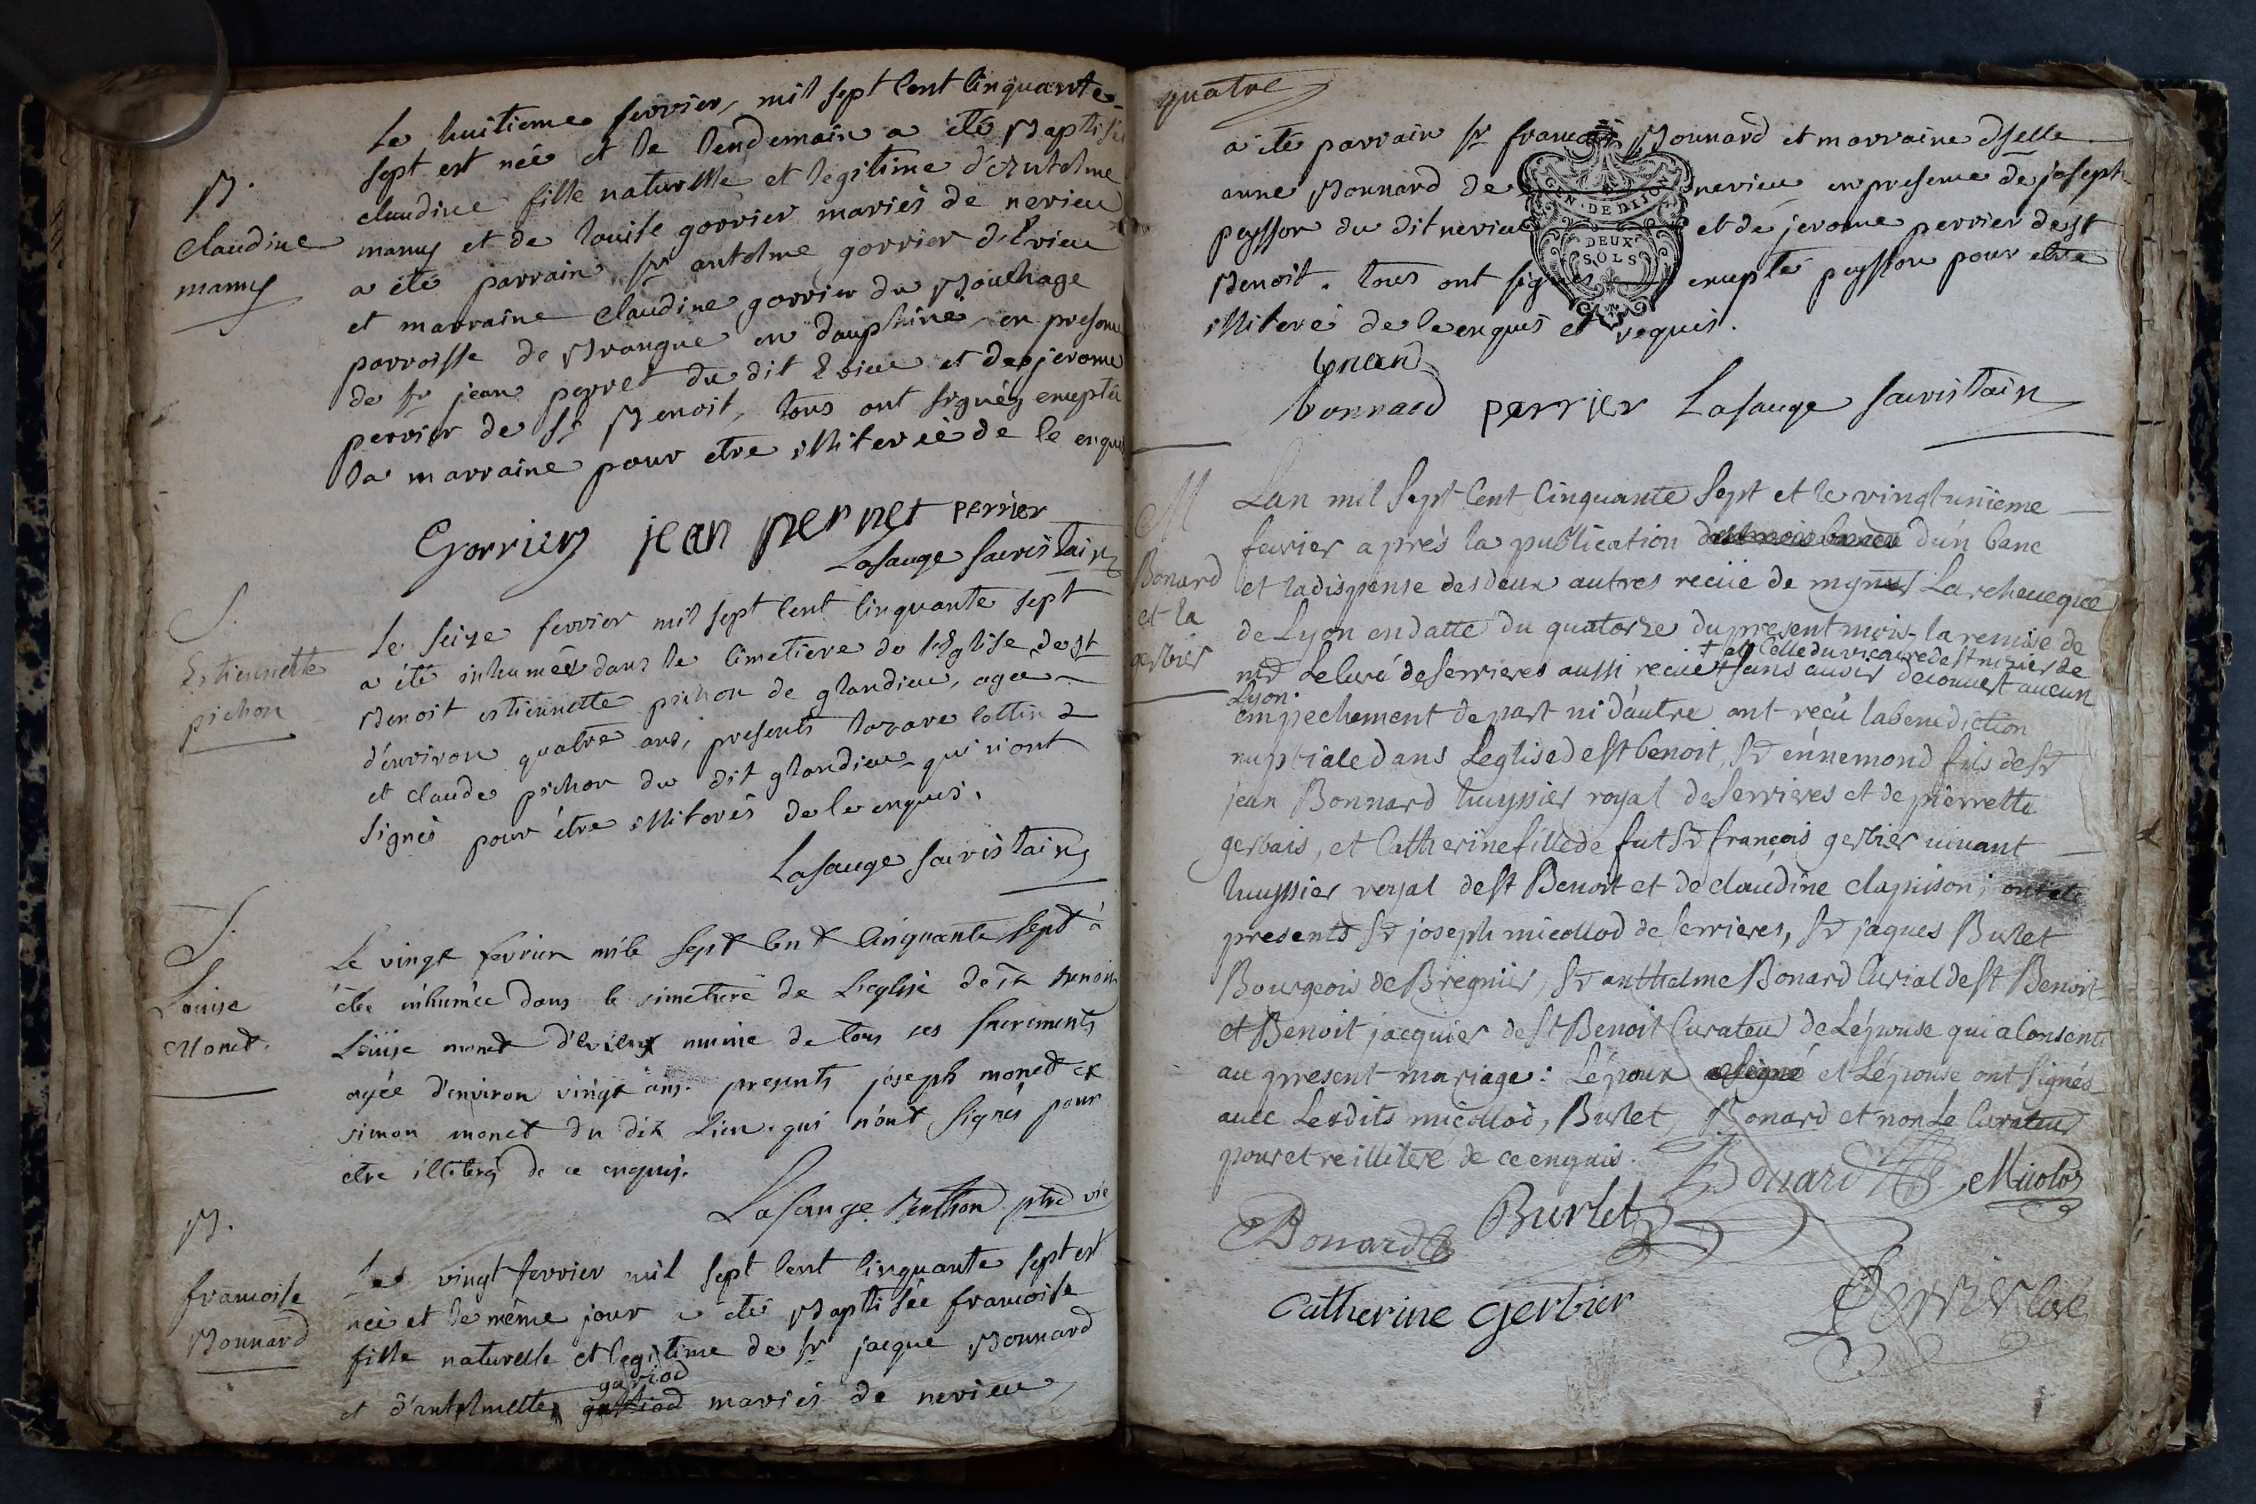 Le huitieme fevrier, mil sept Cent Cinquante
sept est née et le lendemain a été Baptisée
claudine fille naturelle et legitime d'Antolme
mamy et de louise gorrier mariés de nerieu
a été parrain Sr antolme gorrier d'Evieu
et marraine claudine gorrier du Bouchage
parroisse de Brangue en dauphiné, en presence
de Sr jean perret du dit Evieu et de jerome
perrier de St Benoit, tous ont signéz exceptée
la marraine pour etre illiterée de ce enquis
B.
claudine
mamy
Gorrier jean perret perrier
Lasauge sacristain
S.
Estiennette
pichon
Le seize fevrier mil sept Cent Cinquante sept
a été inhumée dans le Cimetiere de l'Eglise de St
Benoit estiennette pichon de glandieu, agée
d'environ quatre ans, presents lazare Cottin
et claude pichon du dit glandieu qui n'ont
signés pour être illiterés de ce enquis.
Lasauge sacristain
S.
Louise
Monet.
Le vingt fevrier mile sept cent Cinquante sept à
été inhumée dans le cimetiere de L'eglise de St Benoit
Louise monet d'Evieu munie de tous ses sacrements
agée d'environ vingt ans. presents joseph monet et
simon monet du dit Lieu. qui n'ont signés pour
etre illiterés de ce enquis.
Lasauge Berthon ptre vic
B.
francoise
Bonnard
Le vingt fevrier mil sept Cent Cinquante sept est
née et le même jour a été Baptisée francoise
fille naturelle et legitime de Sr jacque Bonnard
gariod
et d'antelmette mariés de nerieu
quatre
a été parrain Sr francois Bonnard et marraine dselle
anne Bonnard de nerieu en presence de joseph
peysson du dit nerieu et de jerome perrier de St
Benoit. tous ont signés excepté peysson pour etre
illiteré de ce enquis et requis.
GEN. DE DIJON
DEUX
SOLS
bonard perrier Lasauge sacristain
M
Bonard
et la
gerbier
Lan mil sept Cent Cinquante sept et le vingt unieme
fevrier aprés la publication d'un banc
et la dispense des deux autres recüe de mgr L'archeveque
de Lyon en datte du quatorze du present mois, la remise de
+ et Celle du vicaire de st nizier de
mr Le Curé de serrieres aussi recüe + sans avoir decouvert aucun
Lyon
empechement de part ni d'autre ont reçû la benediction
nuptiale dans L'eglise de st benoit, Sr énnemond fils de Sr
jean Bonnard huyssier royal de serrieres et de pierrette
gerbais, et Catherine fille de fut Sr françois gerbier vivant
huyssier royal de St Benoit et de claudine clapisson; ont été
presents Sr joseph micollod de serrieres, Sr jaques Burlet
Bourgeois de Bregnier, Sr anthelme Bonard Curial de St Benoit
et Benoit jacquier de St Benoit Curateur de L'épouse qui a Consenti
au present mariage: L'époux et L'épouse ont signés
avec Lesdits micollod, Burlet, Bonard et non Le Curateur
pour etre illiteré de ce enquis.
Bonard Micolod
Bonard Burlet
Catherine Gerbier Perrier Curé